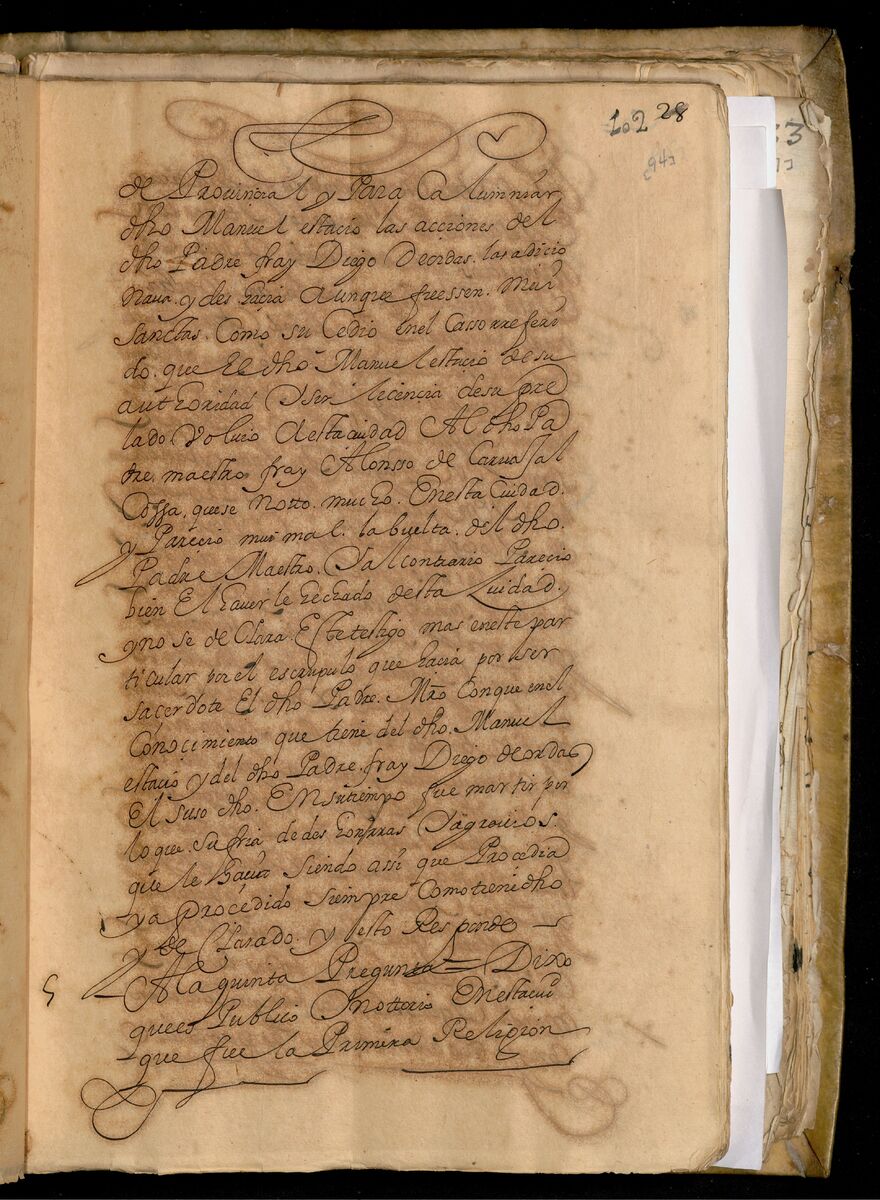 102 28
94
de Provincial y Para Calumniar
dho Manuel estacio las acciones del
dho Padre fray Diego deordas. las adicio
nava. y des hacia aunque fuessen. Mui
sanctas. Como su Cedio enel Casso rreferi
do. que El dho Manuel estacio desu
authoridad Y sin licencia desu pre
lado. Volvio aestaciudad Al dho Pa
dre. maestro fray Alonsso de Carvajal
Cossa, quese notto. mucho. Enesta Ciudad.
y Parecio mui mal. la buelta. del dho.
Padre Maestro. Y al contrario Parecio
bien El haverle hechado desta Ciudad.
y no se de Clara. Este testigo mas eneste par
ticular por el escrupulo que hacia por ser
sacerdote El dho Padre. Mro Conque enel
Conocimiento que tiene del dho. Manuel
estacio y del dho Padre. fray Diego deordas
El suso dho. En su tiempo fue martir por
lo que. sufria de des honrras Y agravios.
que le hacia siendo assi que Procedia
y a Procedido siempre Como tiene dho
y de Clarado. y esto Responde
5 A la quinta Pregunta = Dixo
quees Publico Y nottorio Enestaciu
que fue la Primera Religion